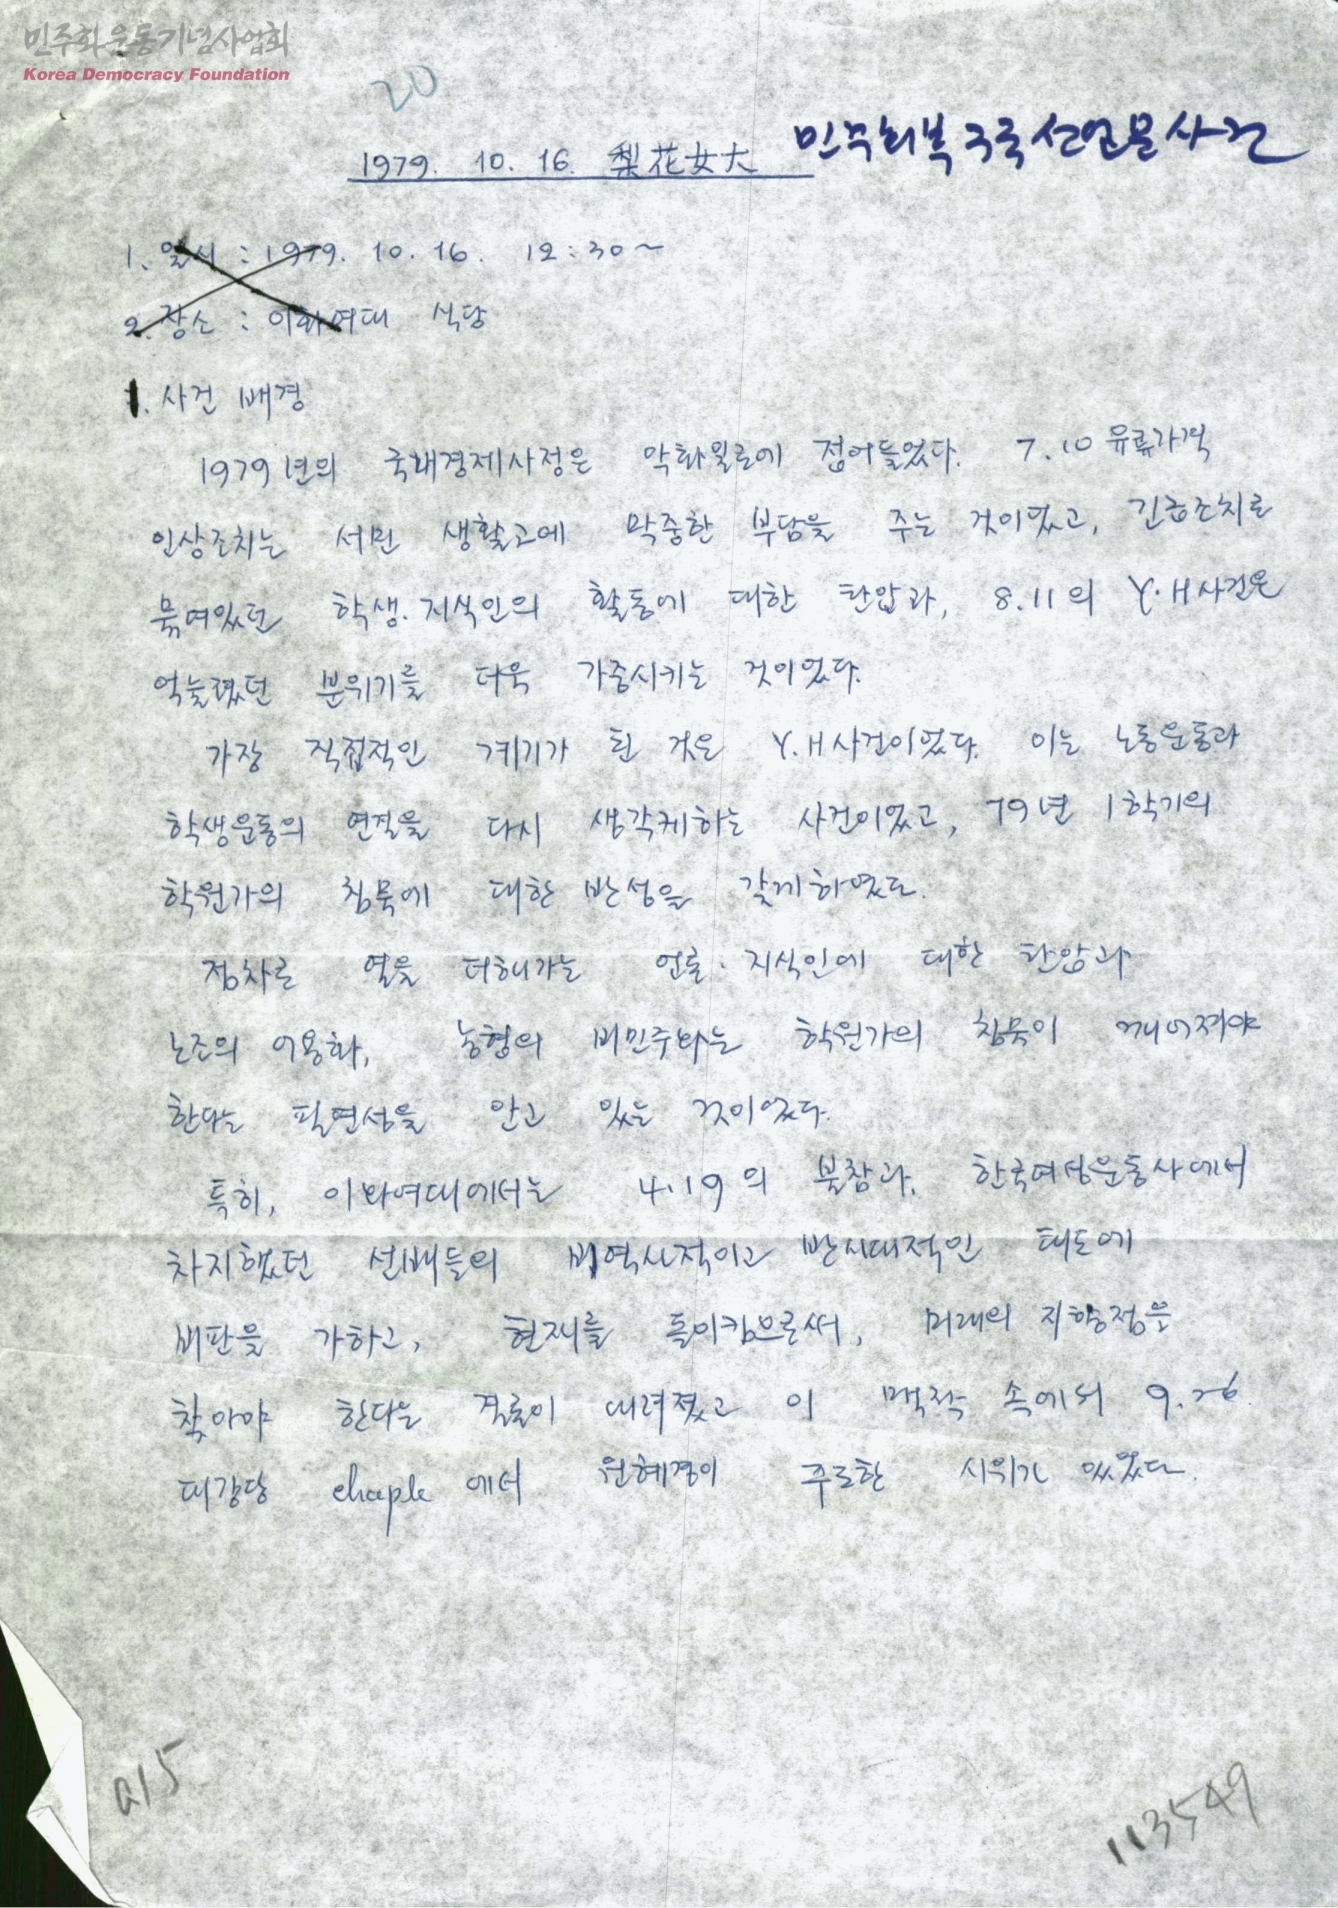 민주화운동기념사업회
Korea Democracy Foundation
20
1979. 10. 16. 梨花女大 민주회복 구국선언문 사건
1. 일시 : 1979. 10. 16. 12:30~
2. 장소 : 이화여대 식당
1. 사건 배경
1979년의 국내경제사정은 악화일로에 접어들었다. 7.10 유류가격
인상조치는 서민 생활고에 막중한 부담을 주는 것이었고, 긴급조치로
묶여있던 학생·지식인의 활동에 대한 탄압과, 8.11의 Y.H사건은
억눌렸던 분위기를 더욱 가중시키는 것이었다.
가장 직접적인 계기가 된 것은 Y.H사건이었다. 이는 노동운동과
학생운동의 연결을 다시 생각케하는 사건이었고, 79년 1학기의
학원가의 침묵에 대한 반성을 갖게하였다.
점차로 열을 더해가는 언론·지식인에 대한 탄압과
노조의 어용화, 농협의 비민주화는 학원가의 침묵이 깨어져야
한다는 필연성을 안고 있는 것이었다.
특히, 이화여대에서는 4.19의 불참과, 한국여성운동사에서
차지했던 선배들의 비역사적이고 반시대적인 태도에
비판을 가하고, 현재를 돌이킴으로써, 미래의 지향점을
찾아야 한다는 결론이 내려졌고 이 맥락 속에서 9.26.
대강당 chaple 에서 원혜경이 주도한 시위가 있었다.
a15
113549